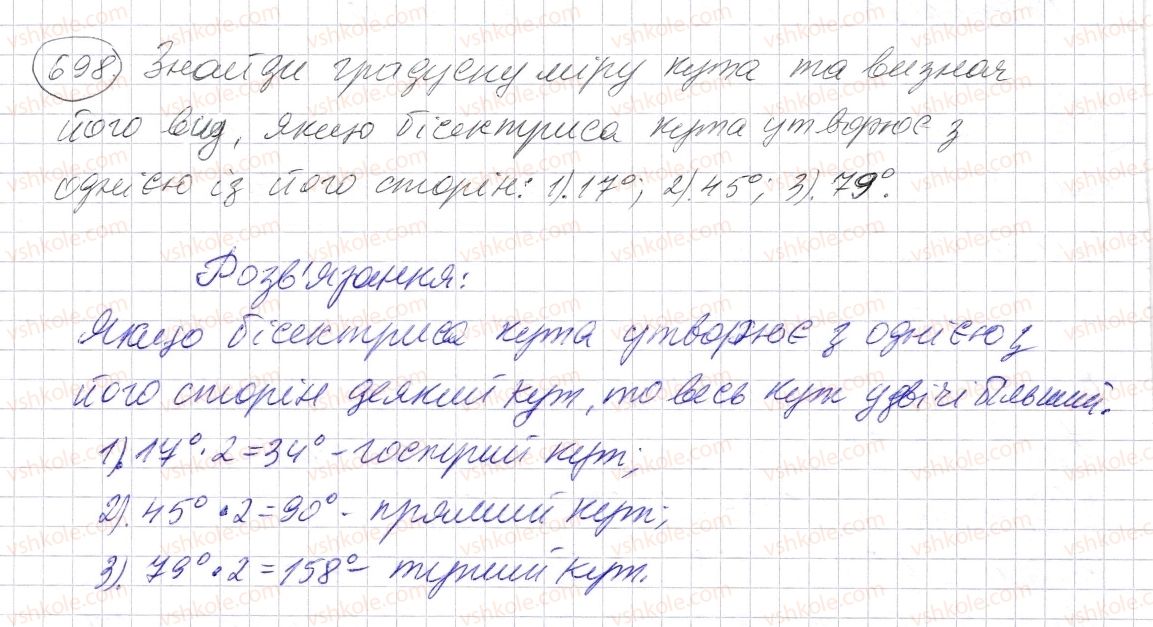 698) Знайди градусну міру кута та визнач
його вид, якщо бісектриса кута утворює з
однією із його сторін: 1). 17°; 2). 45°; 3). 79°.
Розв'язання:
Якщо бісектриса кута утворює з однією з
його сторін деякий кут, то весь кут удвічі більший.
1). 17° · 2 = 34° - гострий кут;
2). 45° · 2 = 90° - прямий кут;
3). 79° · 2 = 158° - тупий кут.